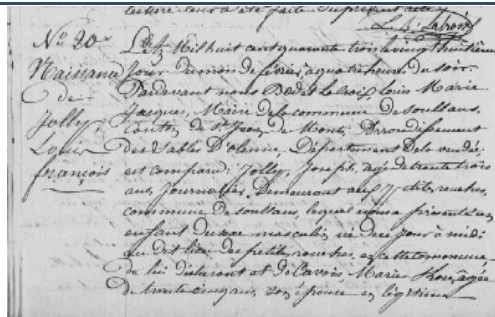 lecture leur a été faite du présent acte
N.º 20
Naissance
de
Jolly
Louis
françois
L'an Mil huit cent quarante trois le vingt huitième
jour du mois de février, à quatre heures du soir.
Pardevant nous Louis Marie
Jacques, Maire de la commune de soullans,
Canton de St Jean de Monts, Arrondissement
des Sables D'olonne, Département de la vendée
est comparu Jolly, Joseph, agé de trente trois
ans, journalier, Demeurant aux petites rouches,
commune de soullans, lequel nous a présenté un
enfant du sexe masculin, né de ce jour à midi
au dit lieu des petites rouches, en cette commune,
de lui déclarant et de Marie, agée
de trente cinq ans, son épouse en légitime